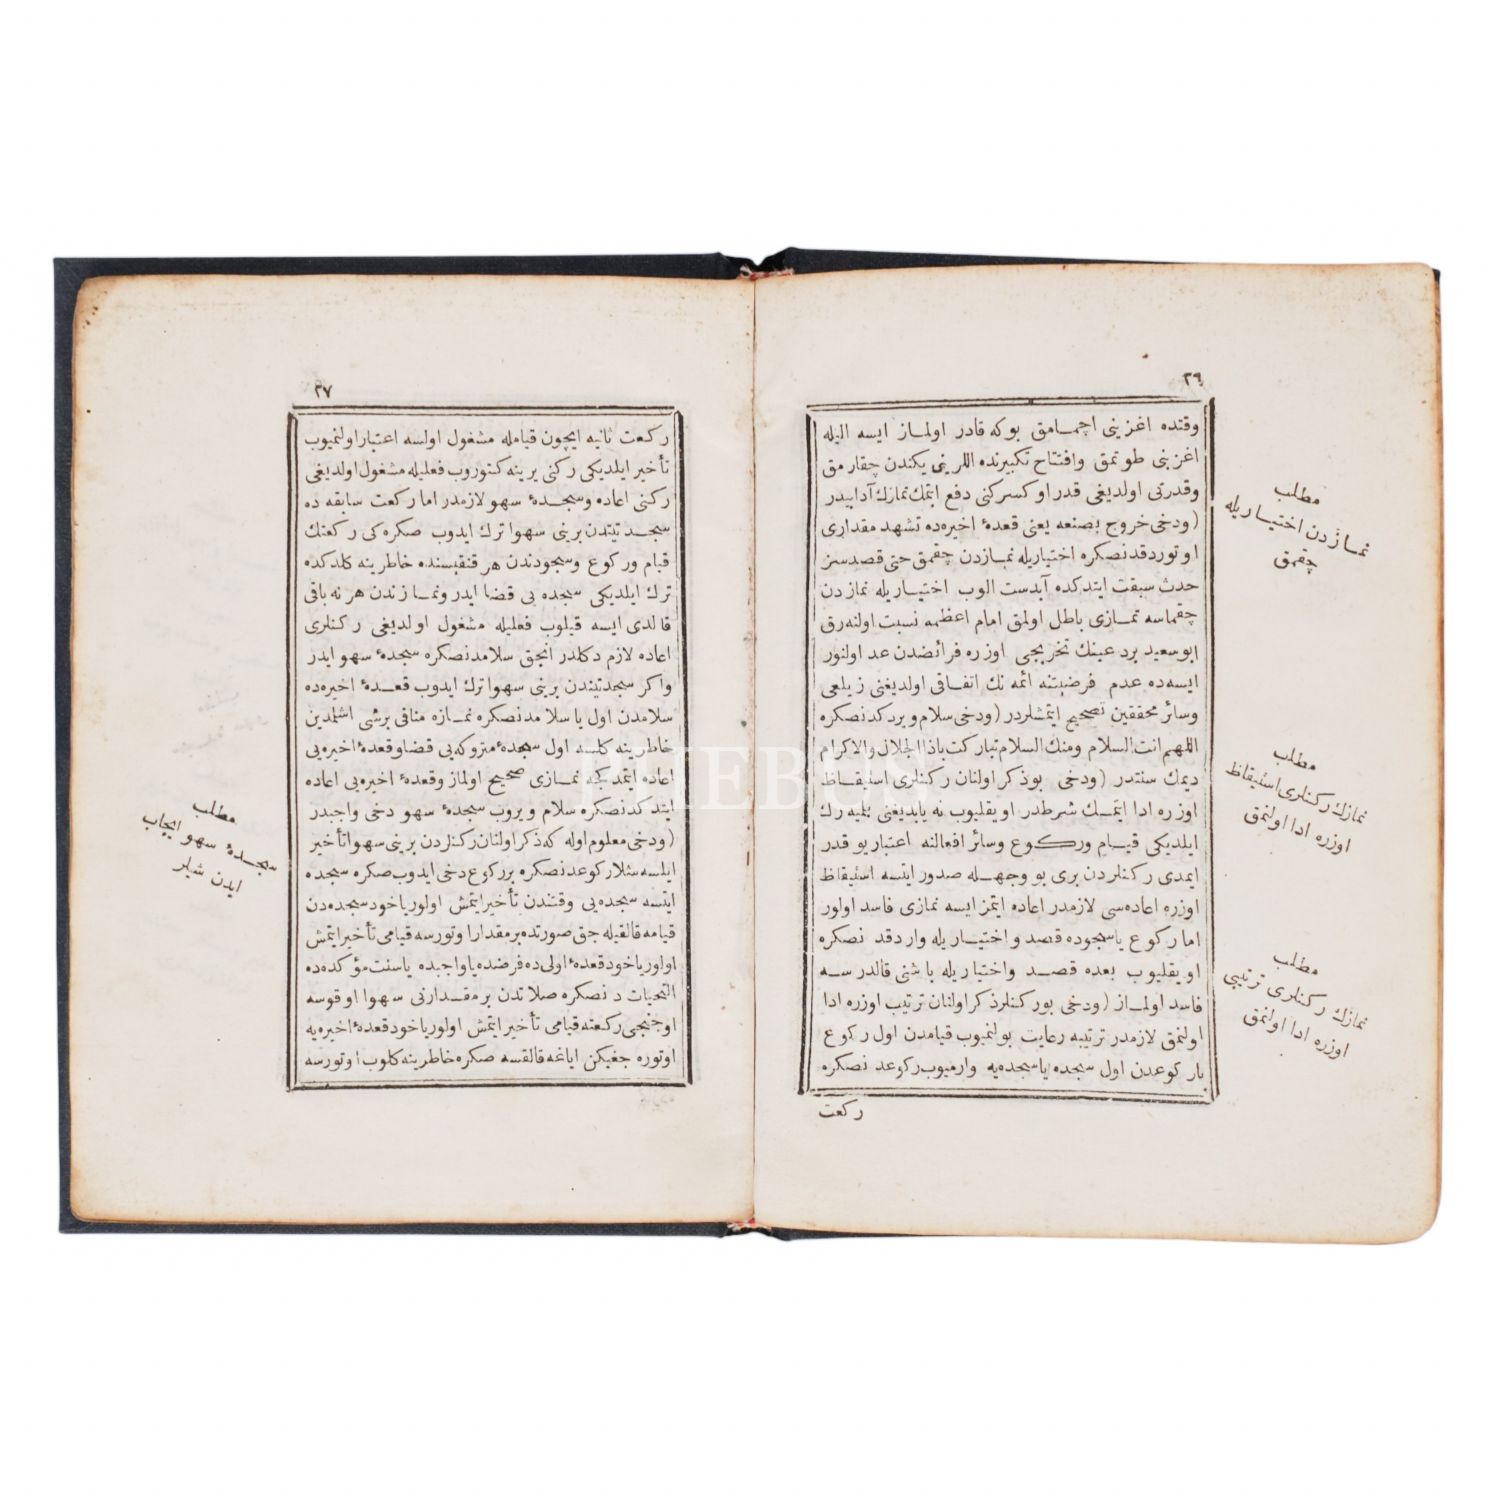 ٣٦
وقتده اغزینی اچمامق بوکه قادر اولماز ایسه الیله
اغزینی طوتمق وافتتاح تکبیرنده اللرینی یکندن چقارمق
وقدرتی اولدیغی قدر اوکسرکنی دفع ایتمك نمازك آدابیدر
(ودخی خروج بصنعه یعنی قعدهٔ اخیره‌ده تشهد مقداری
اوتوردقدنصکره اختیاریله نمازدن چقمق حتی قصدسز
حدث سبقت ایتدکده آبدست الوب اختیاریله نمازدن
چقماسه نمازی باطل اولمق امام اعظمه نسبت اولنه‌رق
ابوسعید بردعینك تخریجی اوزره فرائضدن عد اولنور
ایسه‌ده عدم فرضیتنه ائمه‌نك اتفاقی اولدیغنی زیلعی
وسائر محققین تصحیح ایتمشلردر (ودخی سلام ویردکدنصکره
اللهم انت السلام ومنك السلام تبارکت یاذا الجلال والاکرام
دیمك سنتدر (ودخی بوذکراولنان رکنلری استیقاظ
اوزره ادا ایتمك شرطدر اویقلیوب نه یاپدیغنی بیلمیه‌رك
ایلدیکی قیام ورکوع وسائر افعالنه اعتبار یوقدر
ایمدی رکنلردن بری بو وجهله صدور ایتسه استیقاظ
اوزره اعاده‌سی لازمدر اعاده ایتمز ایسه نمازی فاسد اولور
اما رکوع یاسجوده قصد واختیاریله واردقدنصکره
اویقلیوب بعده قصد واختیاریله باشنی قالدرسه
فاسد اولماز (ودخی بورکنلر ذکراولنان ترتیب اوزره ادا
اولنمق لازمدر ترتیبه رعایت بولنمیوب قیامدن اول رکوع
یارکوعدن اول سجده یاسجده‌یه وارمیوب رکوعدنصکره
رکعت
مطلب
نمازدن اختیاریله
چقمق
مطلب
نمازك رکنلری استیقاظ
اوزره ادا اولنمق
مطلب
نمازك رکنلری ترتیبی
اوزره ادا اولنمق
٣٧
رکعت ثانیه ایچون قیامله مشغول اولسه اعتبار اولنمیوب
تأخیر ایلدیکی رکنی یرینه کتوروب فعلیله مشغول اولدیغی
رکنی اعاده وسجدهٔ سهو لازمدر اما رکعت سابقه‌ده
سجدتیندن برینی سهوا ترك ایدوب صکره‌کی رکعتك
قیام ورکوع وسجودندن هر قنقیسنده خاطرینه کلدکده
ترك ایلدیکی سجده‌یی قضا ایدر ونمازندن هر نه باقی
قالدی ایسه قیلوب فعلیله مشغول اولدیغی رکنلری
اعاده لازم دکلدر انجق سلامدنصکره سجدهٔ سهو ایدر
واکر سجدتیندن برینی سهوا ترك ایدوب قعدهٔ اخیره‌ده
سلامدن اول یاسلامدنصکره نمازه منافی برشی اشلمدین
خاطرینه کلسه اول سجدهٔ متروکه‌یی قضا وقعدهٔ اخیره‌یی
اعاده ایتمدکجه نمازی صحیح اولماز وقعدهٔ اخیره‌یی اعاده
ایتدکدنصکره سلام ویروب سجدهٔ سهو دخی واجبدر
(ودخی معلوم اوله که ذکراولنان رکنلردن برینی سهوا تأخیر
ایلسه مثلا رکوعدنصکره بررکوع دخی ایدوب صکره سجده
ایتسه سجده‌یی وقتندن تأخیر ایتمش اولور یاخود سجده‌دن
قیامه قالقیله‌جق صورتده برمقدار اوتورسه قیامی تأخیر ایتمش
اولور یاخود قعدهٔ اولی‌ده فرضده یا واجبده یاسنت مؤکده‌ده
التحیات دنصکره صلاتدن برمقدارنی سهوا اوقوسه
اوجنجی رکعته قیامی تأخیر ایتمش اولور یاخود قعدهٔ اخیره‌یه
اوتوره جغیکن ایاغه قالقسه صکره خاطرینه کلوب اوتورسه
مطلب
سجدهٔ سهو ایجاب
ایدن شیلر
PHEBUS